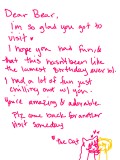 Dear Bear,
I'm so glad you got to
visit ♥
I hope you had fun, &
that this hasn't been like
the lamest birthday ever lol.
I had a lot of fun just
chilling out w/ you.
You're amazing & adorable.
Plz come back for another
visit someday
♥ the Cat